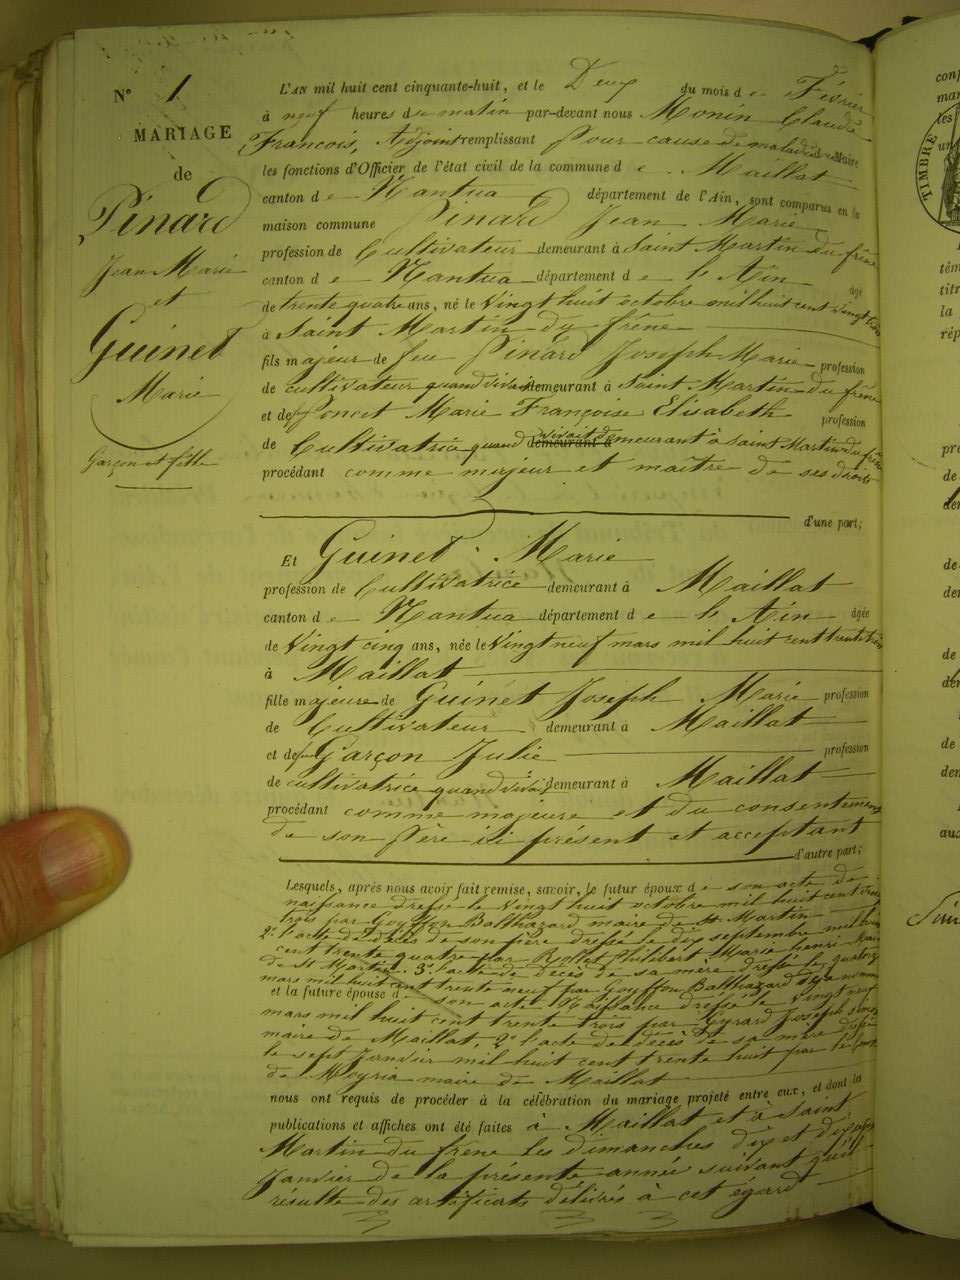 N° 1
MARIAGE
de
Pinard
Jean Marie
et
Guinet
Marie
Garçon et fille
L'AN mil huit cent cinquante-huit, et le Deux du mois de Février
à neuf heures du matin par-devant nous Monin Claude
François, Adjoint remplissant pour cause de maladie du Maire
les fonctions d'Officier de l'état civil de la commune de Maillat
canton de Nantua département de l'Ain, sont comparus en la
maison commune Pinard Jean Marie
profession de Cultivateur demeurant à Saint Martin du frêne
canton de Nantua département de l'Ain âgé
de trente quatre ans, né le Vingt huit octobre mil huit cent vingt trois
à Saint Martin du frêne
fils majeur de feu Pinard Joseph Marie profession
de cultivateur quand vivait demeurant à Saint Martin du frêne
et de feue Poncet Marie Françoise Elisabeth profession
de Cultivatrice quand vivait demeurant à Saint Martin du frêne
procédant comme majeur et maître de ses droits
d'une part;
Et Guinet Marie
profession de Cultivatrice demeurant à Maillat
canton de Nantua département de l'Ain âgée
de Vingt cinq ans, née le Vingt neuf mars mil huit cent trente trois
à Maillat
fille majeure de Guinet Joseph Marie profession
de Cultivateur demeurant à Maillat
et de feue Garçon Julie profession
de cultivatrice quand vivait demeurant à Maillat
procédant comme majeure et du consentement
de son Père ici présent et acceptant
d'autre part;
Lesquels, après nous avoir fait remise, savoir, le futur époux de son acte de
naissance dressé le vingt huit octobre mil huit cent vingt
trois par Goyffon Balthazard maire de St Martin
2° l'acte de décès de son père dressé le dix septembre mil huit
cent trente quatre par Philibert Marie henri maire
de St Martin. 3° l'acte de décès de sa mère dressé le quatorze
mars mil huit cent trente neuf par Goyffon Balthazard déjà nommé
et la future épouse de son acte Naissance dressé le Vingt neuf
mars mil huit cent trente trois par Joseph
maire de Maillat, 2° l'acte de décès de sa mère dressé
le sept Janvier mil huit cent trente huit par le
de Meyria maire de Maillat
nous ont requis de procéder à la célébration du mariage projeté entre eux, et dont les
publications et affiches ont été faites à Maillat et à Saint
Martin du frêne les dimanches dix et dix sept
Janvier de la présente année suivant qu'il
résulte des certificats délivrés à cet égard
TIMBRE